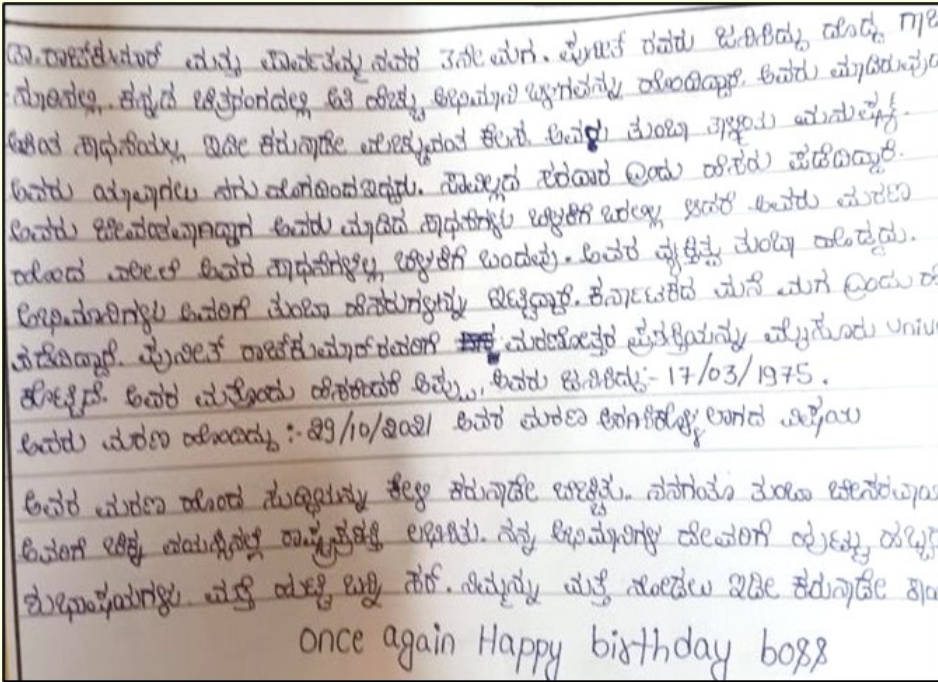 ಡಾ. ರಾಜ್‌ಕುಮಾರ್ ಮತ್ತು ಪಾರ್ವತಮ್ಮ ನವರ 3ನೇ ಮಗ. ಪುನೀತ್ ರವರು ಜನಿಸಿದ್ದು ದೊಡ್ಡ
ಕನ್ನಡ ಚಿತ್ರರಂಗದಲ್ಲಿ ಅತಿ ಹೆಚ್ಚು ಅಭಿಮಾನಿ ಬಳಗವನ್ನು ಹೊಂದಿದ್ದಾರೆ. ಅವರು ಮಾಡಿರುವುದು
ಸಾಧನೆಯಲ್ಲ ಇಡೀ ಕರುನಾಡೇ ಮೆಚ್ಚುವಂತ ಕೆಲಸ. ಅವರು ತುಂಬಾ ಒಳ್ಳೆಯ ಮನುಷ್ಯ.
ಅವರು ಯಾವಾಗಲು ನಗು ಮೊಗದಿಂದ ಇದ್ದರು. ಸಾವಿಲ್ಲದ ಸರದಾರ ಎಂದು ಹೆಸರು ಪಡೆದಿದ್ದಾರೆ.
ಅವರು ಜೀವಂತವಾಗಿದ್ದಾಗ ಅವರು ಮಾಡಿದ ಸಾಧನೆಗಳು ಬೆಳಕಿಗೆ ಬರಲಿಲ್ಲ ಆದರೆ ಅವರು ಮರಣ
ಹೊಂದ ಮೇಲೆ ಅವರ ಸಾಧನೆಗಳೆಲ್ಲ ಬೆಳಕಿಗೆ ಬಂದವು. ಅವರ ವ್ಯಕ್ತಿತ್ವ ತುಂಬಾ ದೊಡ್ಡದು.
ಅಭಿಮಾನಿಗಳು ಅವರಿಗೆ ತುಂಬಾ ಹೆಸರುಗಳನ್ನು ಇಟ್ಟಿದ್ದಾರೆ. ಕರ್ನಾಟಕದ ಮನೆ ಮಗ ಎಂದು
ಪಡೆದಿದ್ದಾರೆ. ಪುನೀತ್ ರಾಜ್‌ಕುಮಾರ್ ರವರಿಗೆ ಮರಣೋತ್ತರ ಪ್ರಶಸ್ತಿಯನ್ನು ಮೈಸೂರು
ಕೊಟ್ಟಿದೆ. ಅವರ ಮತ್ತೊಂದು ಹೆಸರೆಂದರೆ ಅಪ್ಪು. ಅವರು ಜನಿಸಿದ್ದು :- 17/03/1975.
ಅವರು ಮರಣ ಹೊಂದಿದ್ದು :- 29/10/2021 ಅವರ ಮರಣ ಅರಗಿಸಿಕೊಳ್ಳಲಾಗದ ವಿಷಯ
ಅವರ ಮರಣ ಹೊಂದ ಸುದ್ದಿಯನ್ನು ಕೇಳಿ ಕರುನಾಡೇ ಬೆಚ್ಚಿತು. ನನಗಂತೂ ತುಂಬಾ
ಅವರಿಗೆ ಚಿಕ್ಕ ವಯಸ್ಸಿನಲ್ಲೆ ರಾಷ್ಟ್ರಪ್ರಶಸ್ತಿ ಲಭಿಸಿತು. ನನ್ನ ಅಭಿಮಾನಿಗಳ ದೇವರಿಗೆ ಹುಟ್ಟು
ಶುಭಾಷಯಗಳು. ಮತ್ತೆ ಹುಟ್ಟಿ ಬನ್ನಿ ಸರ್. ನಿಮ್ಮನ್ನು ಮತ್ತೆ ನೋಡಲು ಇಡೀ ಕರುನಾಡೇ
once again Happy birthday boss